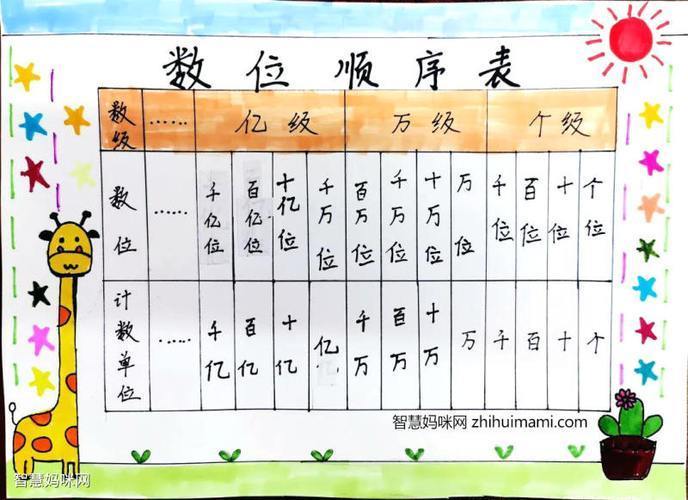 数位顺序表
数级 …… 亿级 万级 个级
数位 …… 千亿位 百亿位 十亿位 千万位 百万位 千万位 十万位 万位 千位 百位 十位 个位
计数单位 …… 千亿 百亿 十亿 亿 千万 百万 十万 万 千 百 十 个
智慧妈咪网 zhihuimami.com
智慧妈咪网